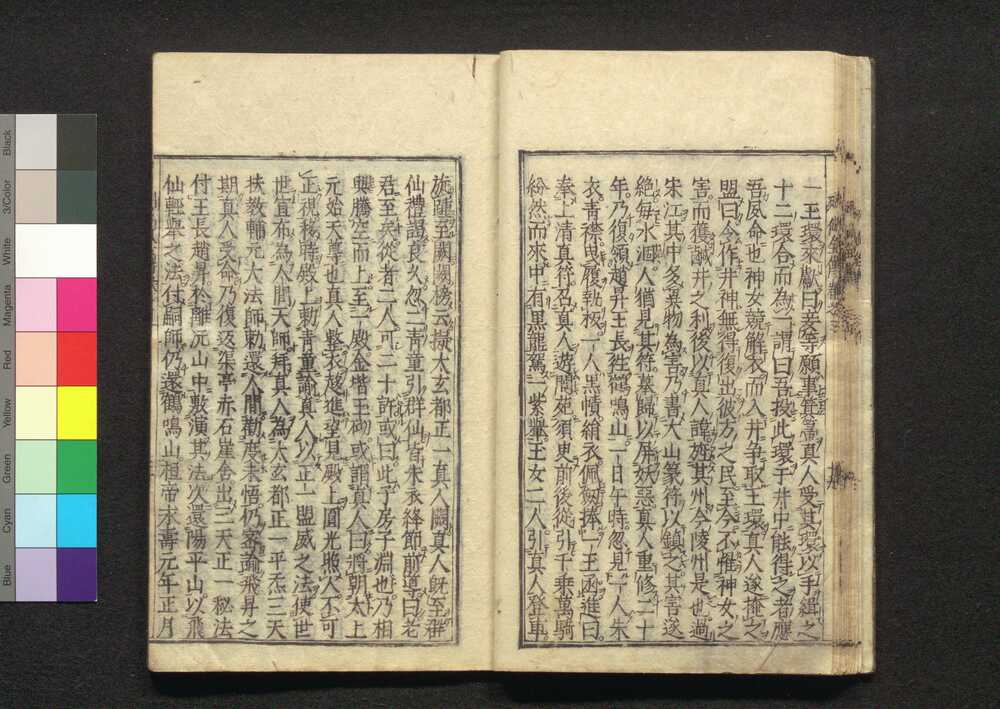 一玉環來獻曰妾等願事箕箒真人受其環以手緝之
十二環合而為一謂曰吾投此環于井中能得之者應
吾夙命也神女競解衣而入井爭取玉環真人遂掩之
盟曰令作井神無得復出彼方之民至今不罹神女之
害而獲鹹井之利後以真人諱灶其州今陵州是也過
宋江其中多異物為害乃書大山篆符以鎮之其害遂
絶每水涸人猶見其符墓歸以屏妖惡真人重修二十
年乃復領趙昇王長徃鶴鳴山一日午時忽見一人朱
衣青襟曳履執板一人黒幘絹衣佩劒捧一玉函進曰
奉上清真符名真人遊閬苑須臾前後從引千乗萬騎
紛然而來中有黒龍駕一紫轝玉女二人引真人登車
旋踵至闕闕榜云擬太玄都正一真人闕真人既至群
仙禮謁良久忽二青童引群仙皆朱衣絳節前導曰老
君至矣從者二人可二十許或曰此子房子淵也乃相
與騰空而上至一殿金堦玉砌或謂真人曰將朝太上
元始天尊也真人整衣趍進望見殿上圓光照人不可
正視移時殿上勅青童諭真人以正一盟威之法使世
世宣布為人間天師拜真人為太玄都正一平炁三天
扶教輔元大法師勅還人間勸度未悟仍密諭飛昇之
期真人受命乃復返渠亭赤石崖舍出三天正一秘法
付王長趙昇於離沅山中敷演其法次還陽平山以飛
仙輕舉之法付嗣師仍還鶴鳴山桓帝永壽元年正月
Black
3/Color
White
Magenta
Red
Yellow
Green
Cyan
Blue